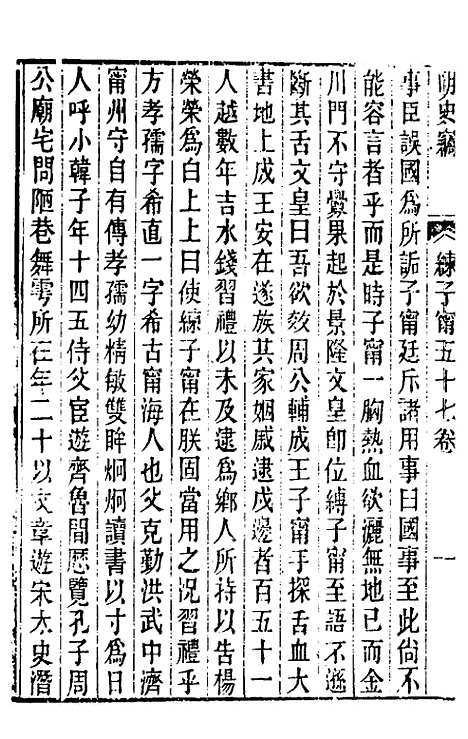 明史竊　練子甯　五十七卷　一
事臣誤國為所詬子甯廷斥諸用事曰國事至此尙不
能容言者乎而是時子甯一胸熱血欲灑無地已而金
川門不守釁果起於景隆文皇卽位縛子甯至語不遜
斷其舌文皇曰吾欲效周公輔成王子甯手探舌血大
書地上成王安在遂族其家姻戚逮戍邊者百五十一
人越數年吉水錢習禮以未及逮為鄉人所持以告楊
榮榮為白上上曰使練子甯在朕固當用之況習禮乎
方孝孺字希直一字希古甯海人也父克勤洪武中濟
甯州守自有傳孝孺幼精敏雙眸炯炯讀書以寸為日
人呼小韓子年十四五侍父宦遊齊魯間歷覽孔子周
公廟宅問陋巷舞雩所在年二十以文章遊宋太史潛